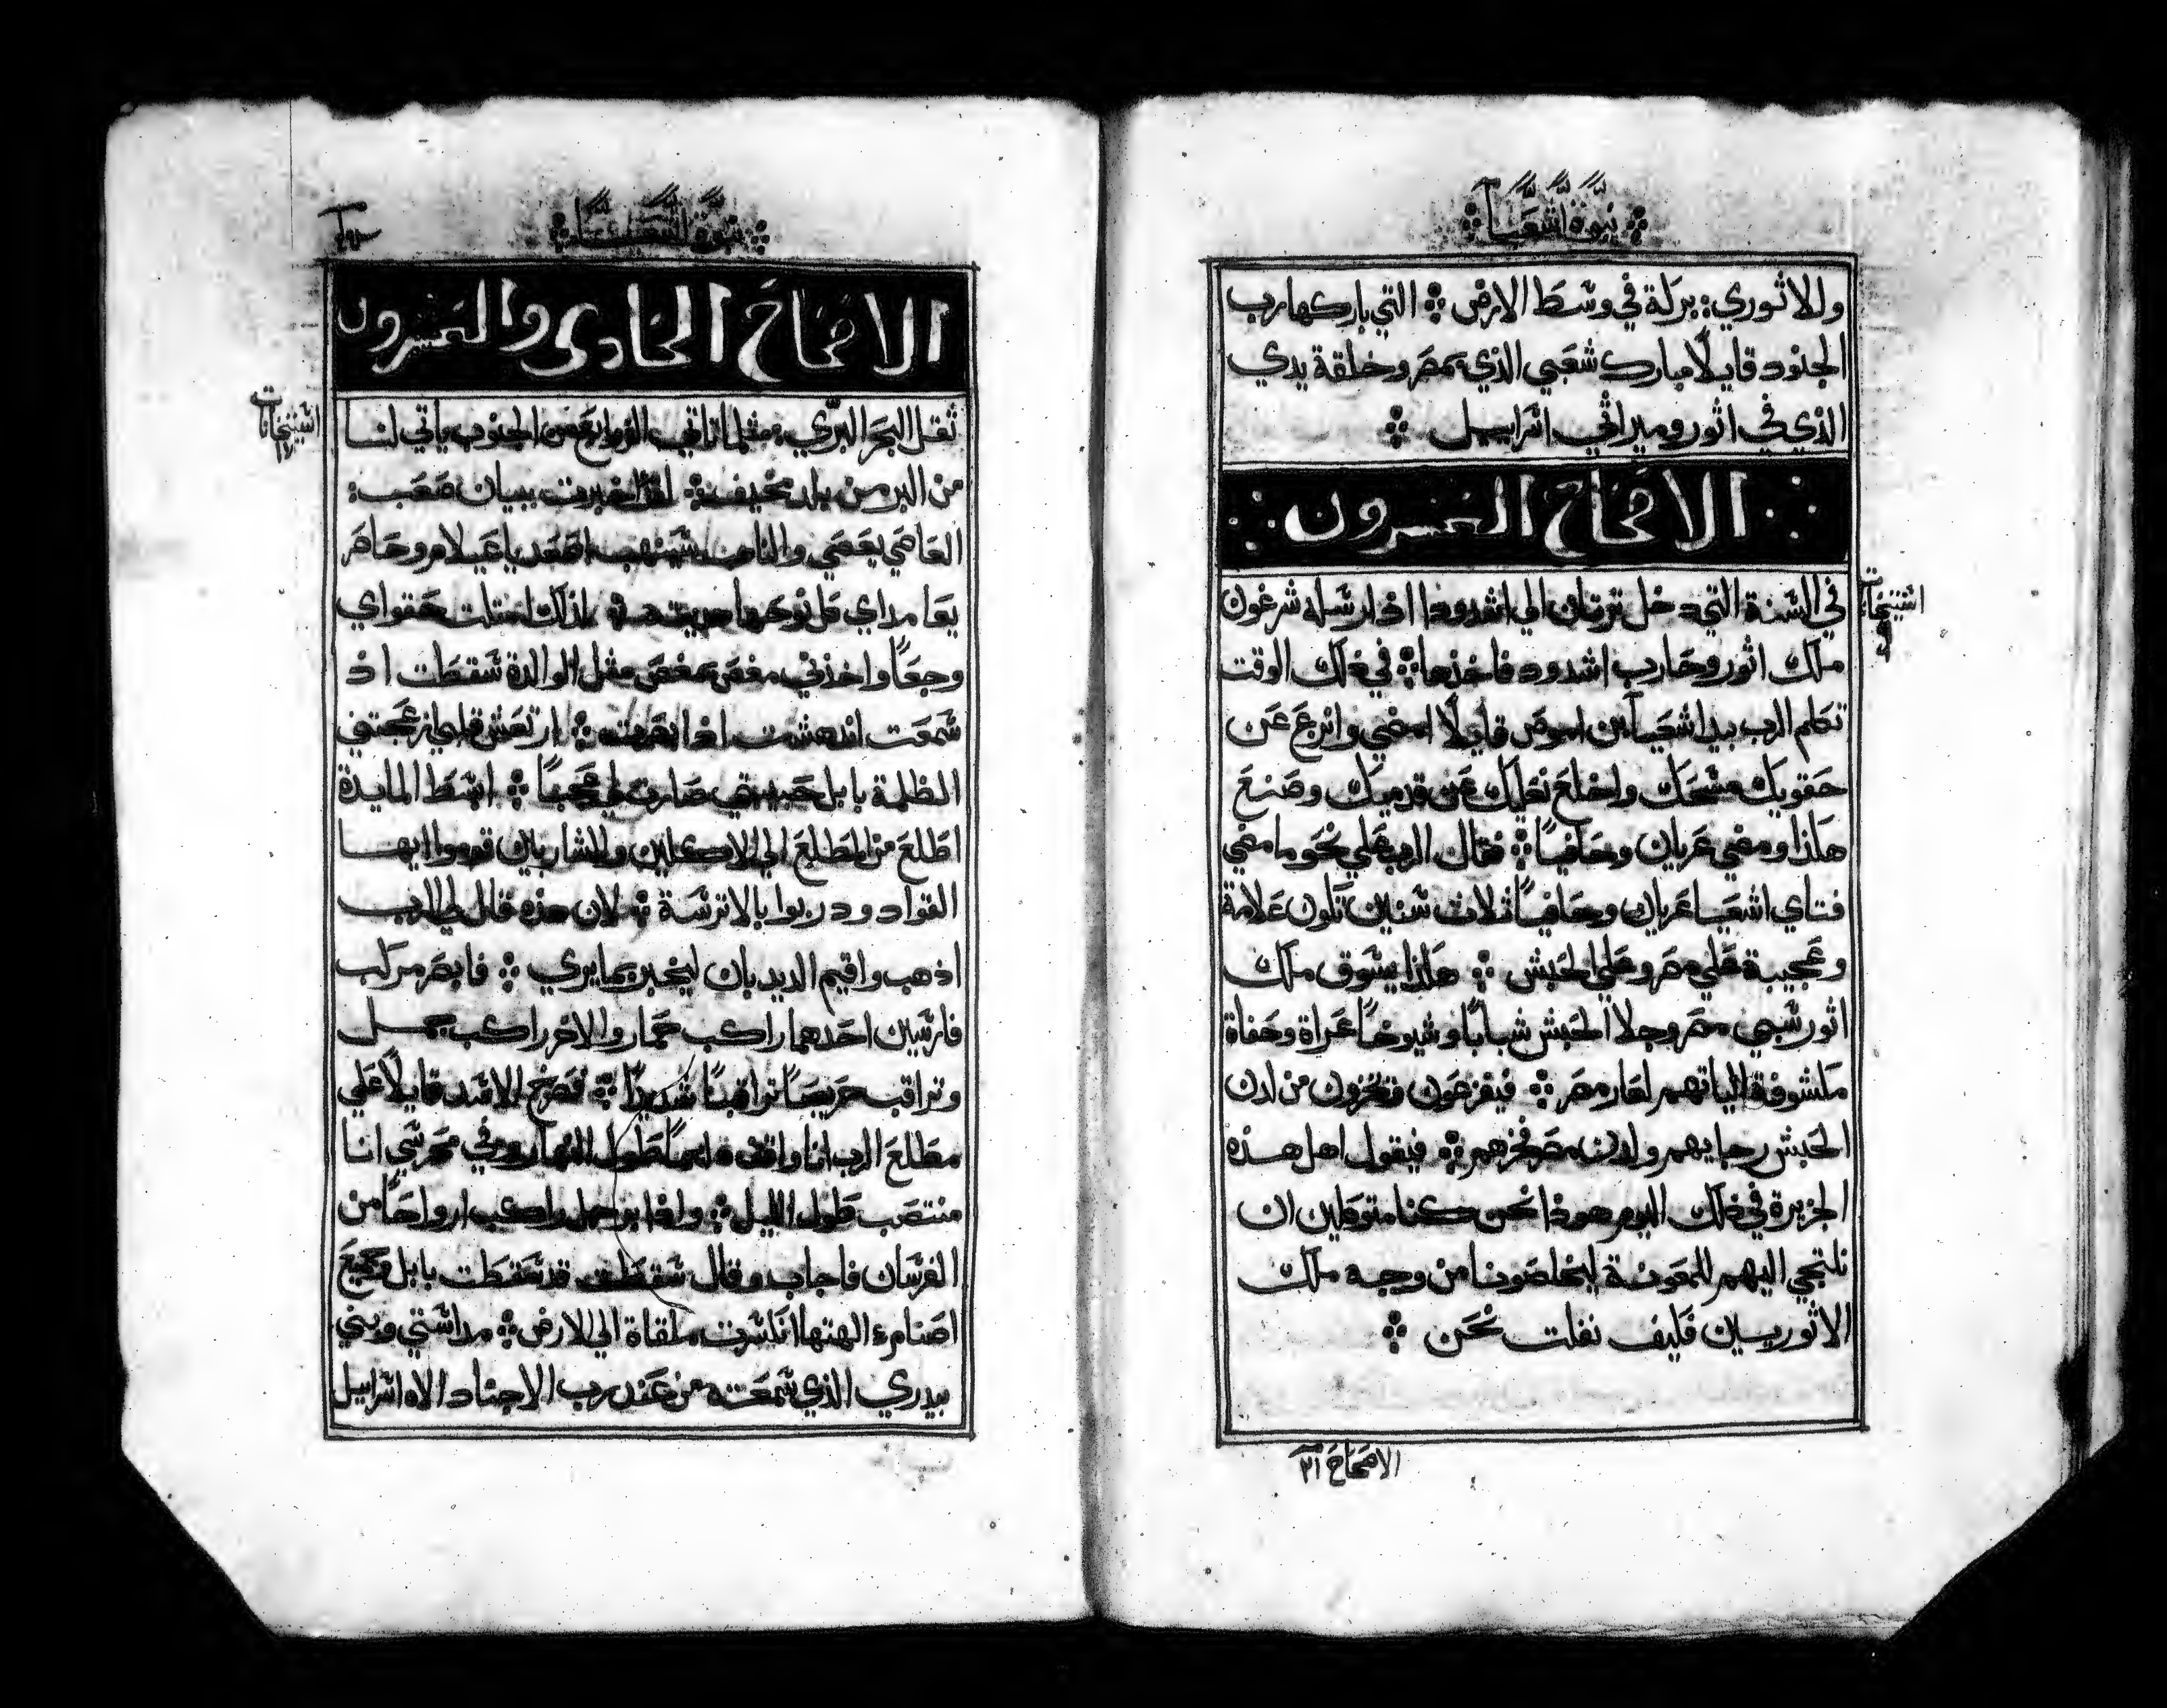 نبوة اشعيا
وللاثوري : بركة في وسط الارض ჻ التي باركها رب
الجنود قايلًا مبارك شعبي الذي بمصر وخلقة يدي
الذي في اثور وميراثي اسراييل ჻
الاصحاح العشرون
اشتيخانات
في السنة التي دخل ترتان الي اشدود اذ ارسله شرغون
ملك اثور وحارب اشدود فاخذها ჻ في ذلك الوقت
تكلم الرب بيد اشعيا بن اموص قايلًا امضي وانزع عن
حقويك مسحك واخلع نعليك عن قدميك وصنع
هكذا ومضي عريان وحافيًا ჻ فقال الرب علي نحو ما مضي
فتاي اشعيا عريان وحافيًا ثلاث سنين تكون علامة
وعجيبة علي مصر وعلي الحبش ჻ هكذا يسوق ملك
اثور سبي مصر وجلا الحبش شبابًا وشيوخًا عراة وحفاة
مكشوفة الياتهم لعار مصر ჻ فيفزعون ويخزون من لدن
الحبش رجايهم ولدن مصر فخرهم ჻ فيقول اهل هذه
الجزيرة في ذلك اليوم هوذا نحن كنا متوكلين ان
نلتجي اليهم للمعونة ليخلصونا من وجه ملك
الاثوريين فكيف نفلت نحن ჻
الاصحاح ٢١
نبوة اشعيا
الاصحاح الحادي والعشرون
اشتيخانات
ثقل البحر البري : مثلما تاتي الزوابع من الجنوب ياتي لنا
من البر من بلد مخيف ჻ اخبرت ببيان صعب :
العاصي يعصي والناهب ينهب اصعدي يا عيلام وحاصر
يا ماداي كل نوحها ჻ لذلك امتلت حقواي
وجعًا واخذني مغص كمغص مثل الوالدة سقطت اذ
سمعت اندهشت اذ ابصرت ჻ ارتعش قلبي ازعجتني
الظلمة بابل حبيبتي صارت لي عجبًا ჻ ابسط المايدة
اطلع من المطلع الي الاكلين والشاربين قوموا ايها
القواد ودربوا بالاترسة ჻ لان هذه قال لي الرب
اذهب واقيم الديدبان ليخبر بما يري ჻ فابصر مركب
فارسين احدهما راكب حمار والاخر راكب جمل
وتراقب حريصًا تراقبًا شديدًا ჻ فصرخ الاسد قايلًا علي
مطلع الرب انا واقف دايمًا طول النهار وفي محرسي انا
منتصب طول الليل ჻ واذا بوجل راكب ازواجًا من
الفرسان فاجاب وقال سقطت قد سقطت بابل وجميع
اصنام الهتها انكسرت ملقاة الي الارض ჻ مداستي وبني
بيدري الذي سمعته من عند رب الاجناد الاه اسراييل